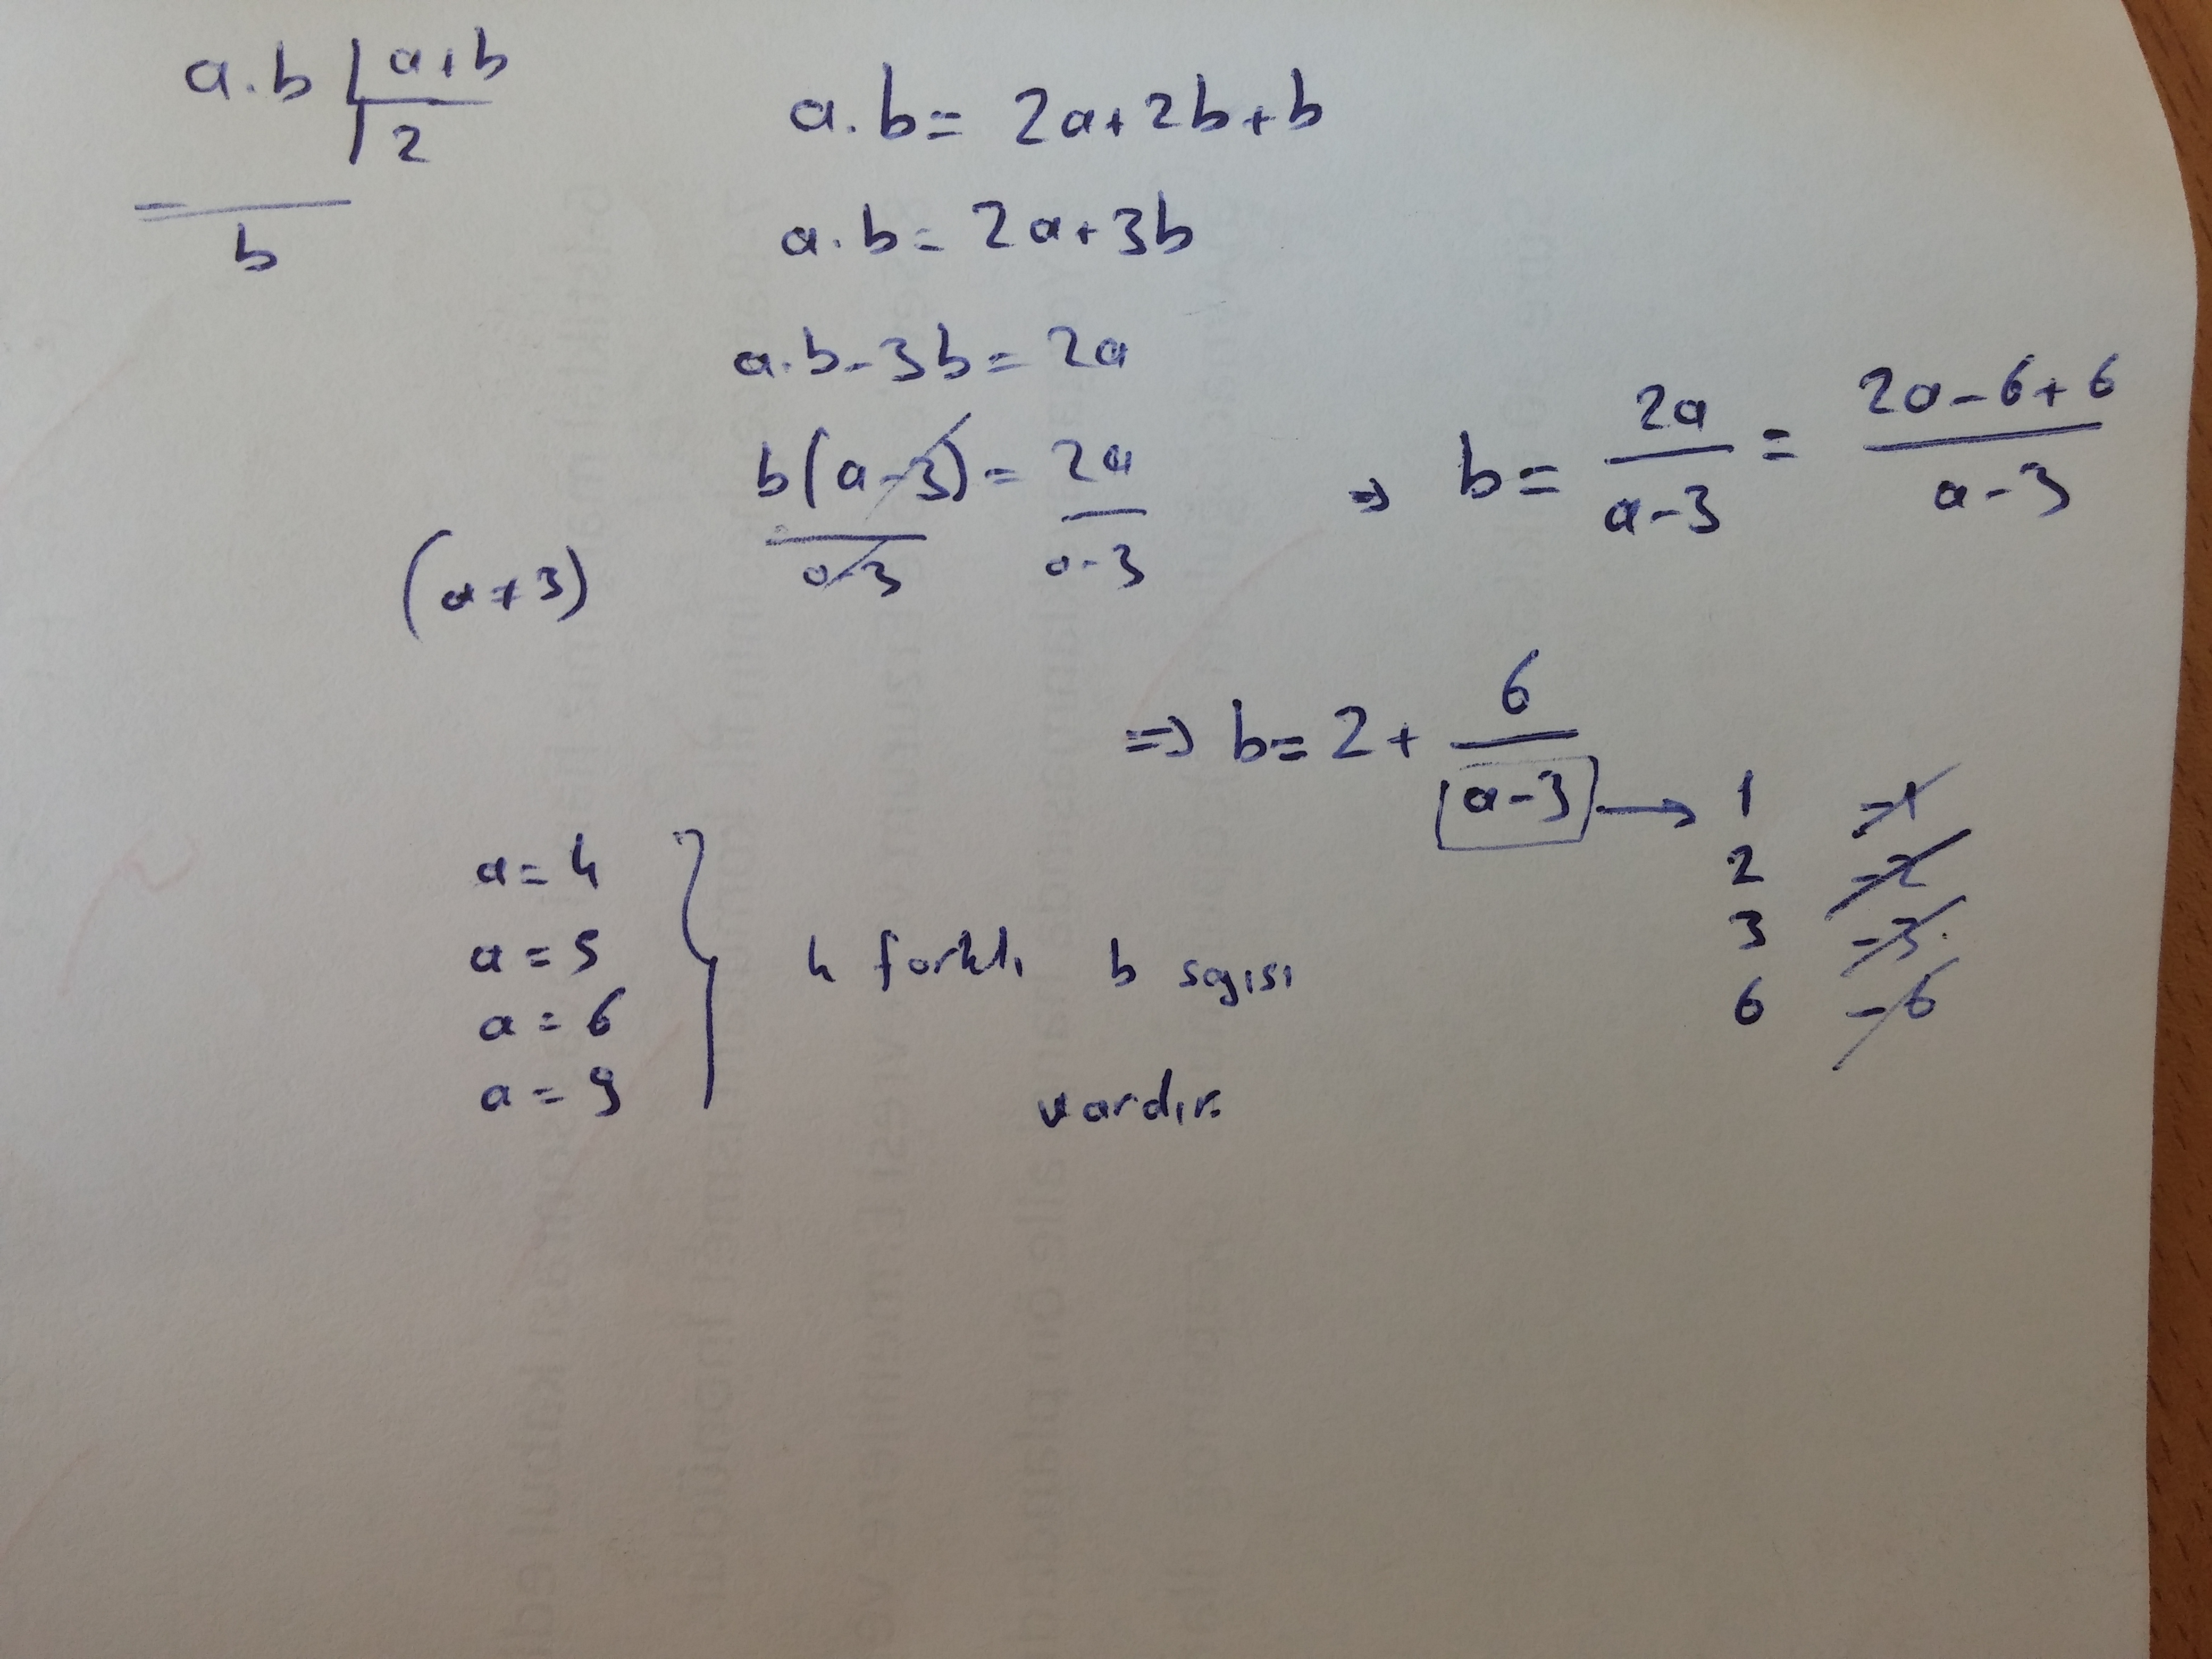 a.b | a+b
2
b
a.b = 2a+2b+b
a.b = 2a+3b
a.b-3b = 2a
b(a-3) = 2a
a-3 a-3
⇒ b = 2a = 2a-6+6
a-3 a-3
(a+3)
⇒ b = 2 + 6
a-3 → 1 -1
2 -2
3 -3
6 -6
a = 4
a = 5
a = 6
a = 9
4 farklı b sgısı
vardır.